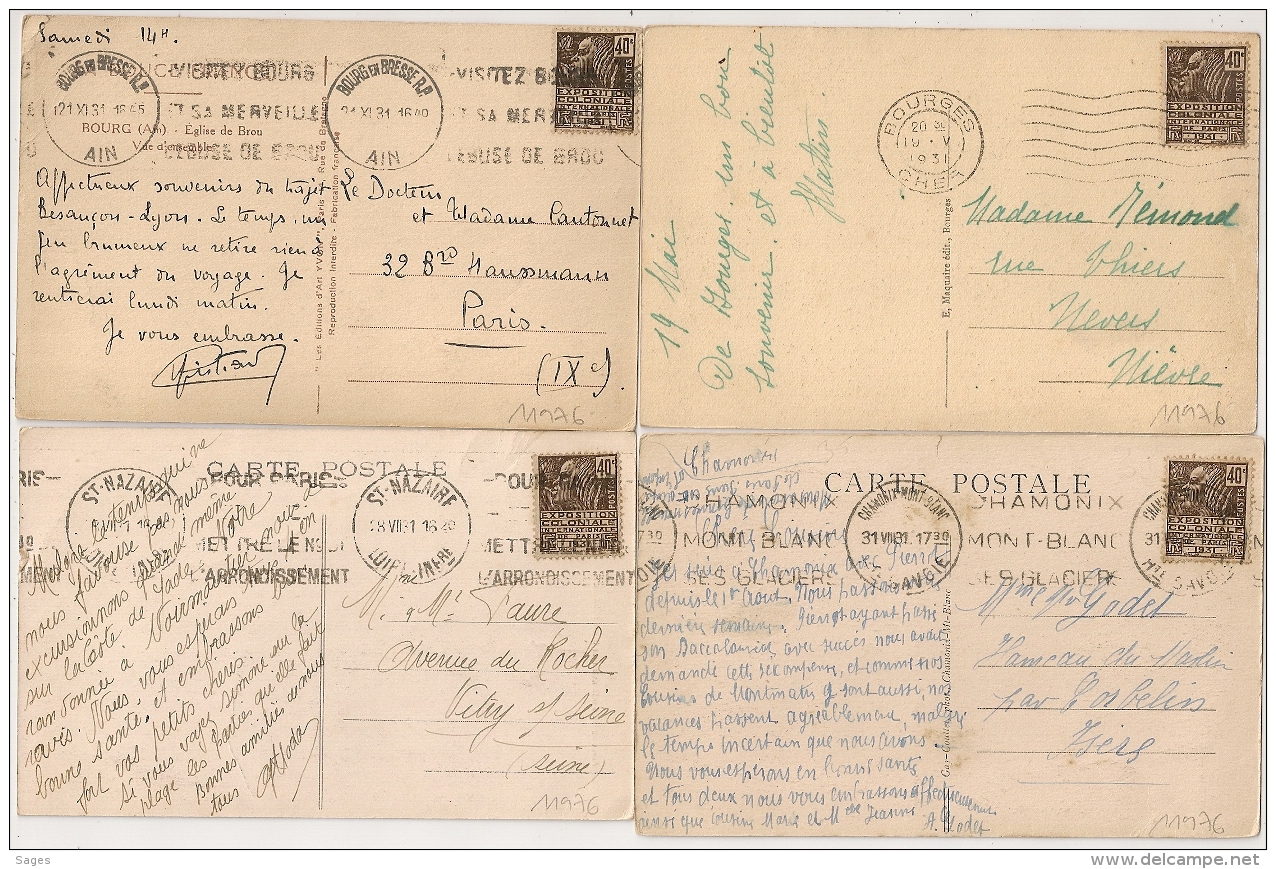 Samedi 14H.
BOURG EN BRESSE R.P.
21 XI 31 16 45
AIN
VISITEZ BOURG
ET SA MERVEILLE
L'EGLISE DE BROU
BOURG EN BRESSE R.P.
21 XI 31
AIN
VISITEZ BOURG
ET SA MERVEILLE
L'EGLISE DE BROU
40c
POSTES
EXPOSITION
COLONIALE
INTERNATIONALE
DE PARIS
1931
BOURG (Ain) - Eglise de Brou
Vue d'ensemble
Affectueux souvenirs du trajet
Besançon-Lyon. Le temps, un
peu brumeux ne retire rien à
l'agrément du voyage. Je
rentrerai lundi matin.
Je vous embrasse.
"Les Editions d'Art YVON", Paris
Reproduction Interdite - Fabrication française
Le Docteur
et Madame Cantonnet
32 Bd Haussmann
Paris.
(IXe)
11976
19 Mai
De Bourges, un bon
souvenir. et à bientôt
BOURGES
20 H
19 - V
1931
CHER
40c
POSTES
EXPOSITION
COLONIALE
INTERNATIONALE
DE PARIS
1931
E. Maquaire édit., Bourges
Madame Rémond
rue Thiers
Nevers
Nièvre
11976
CARTE POSTALE
ST-NAZAIRE
LOIRE INFRE
POUR PARIS
METTRE LE No
D'ARRONDISSEMENT
ST-NAZAIRE
28 VII 31
LOIRE INFRE
40c
POSTES
EXPOSITION
COLONIALE
INTERNATIONALE
DE PARIS
1931
Malgré le temps qui ne
nous favorise pas, nous
excursionnons quand même
sur la Côte de Jade. Notre
randonnée à Noirmoutier nous a
ravis. Nous vous espérons tous en
bonne santé, et embrassons bien
fort vos petits chéris.
Si vous voyez Simone sur la
plage
bonnes amitiés de nous
tous
M. & Me Faure
Avenue du Rocher
Vitry s/ Seine
(Seine)
11976
Chamonix
CARTE POSTALE
CHAMONIX
MONT-BLANC
SES GLACIERS
CHAMONIX-MONT-BLANC
31 VIII 31 17 30
HTE SAVOIE
CHAMONIX
MONT-BLANC
SES GLACIERS
40c
POSTES
EXPOSITION
COLONIALE
INTERNATIONALE
DE PARIS
1931
Je suis à Chamonix avec Pierrot
depuis le 1er Aout. Nous passons la
dernière semaine. Pierrot ayant passé
son Baccalauréat avec succès nous avait
demandé cette récompense, et comme nos
Cousins de Montmartre y sont aussi, nos
vacances passent agréablement, malgré
le temps incertain que nous avons.
Nous vous espérons en bonne santé
et tous deux nous vous embrassons affectueusement
ainsi que Cousine Marie et Melle Jeanne
A. Godet
Mme Vve Godet
Hameau du Malin
par Corbelin
Isère
11976
Sages
www.delcampe.net